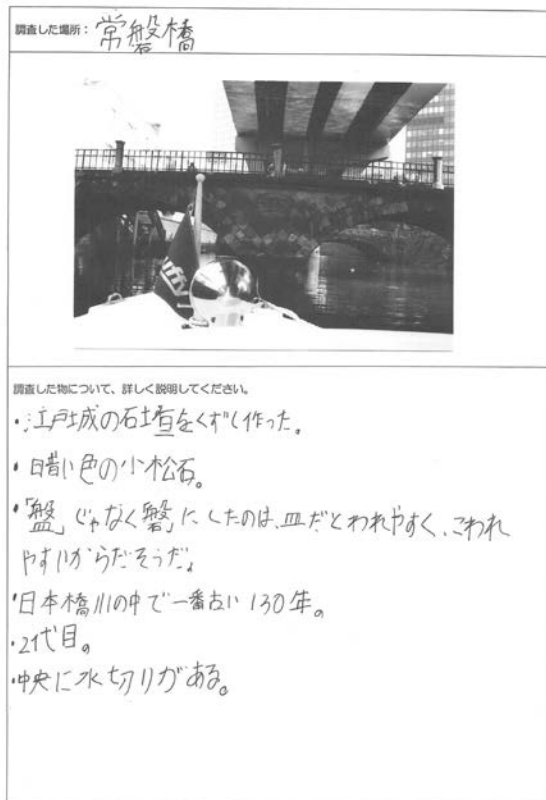 調査した場所: 常磐橋
nifty
調査した物について、詳しく説明してください。
・江戸城の石垣をくずし作った。
・暗い色の小松石。
・「盤」じゃなく「磐」にしたのは、皿だとわれやすく、こわれ
やすいからだそうだ。
・日本橋川の中で一番古い130年。
・2代目。
・中央に水切りがある。